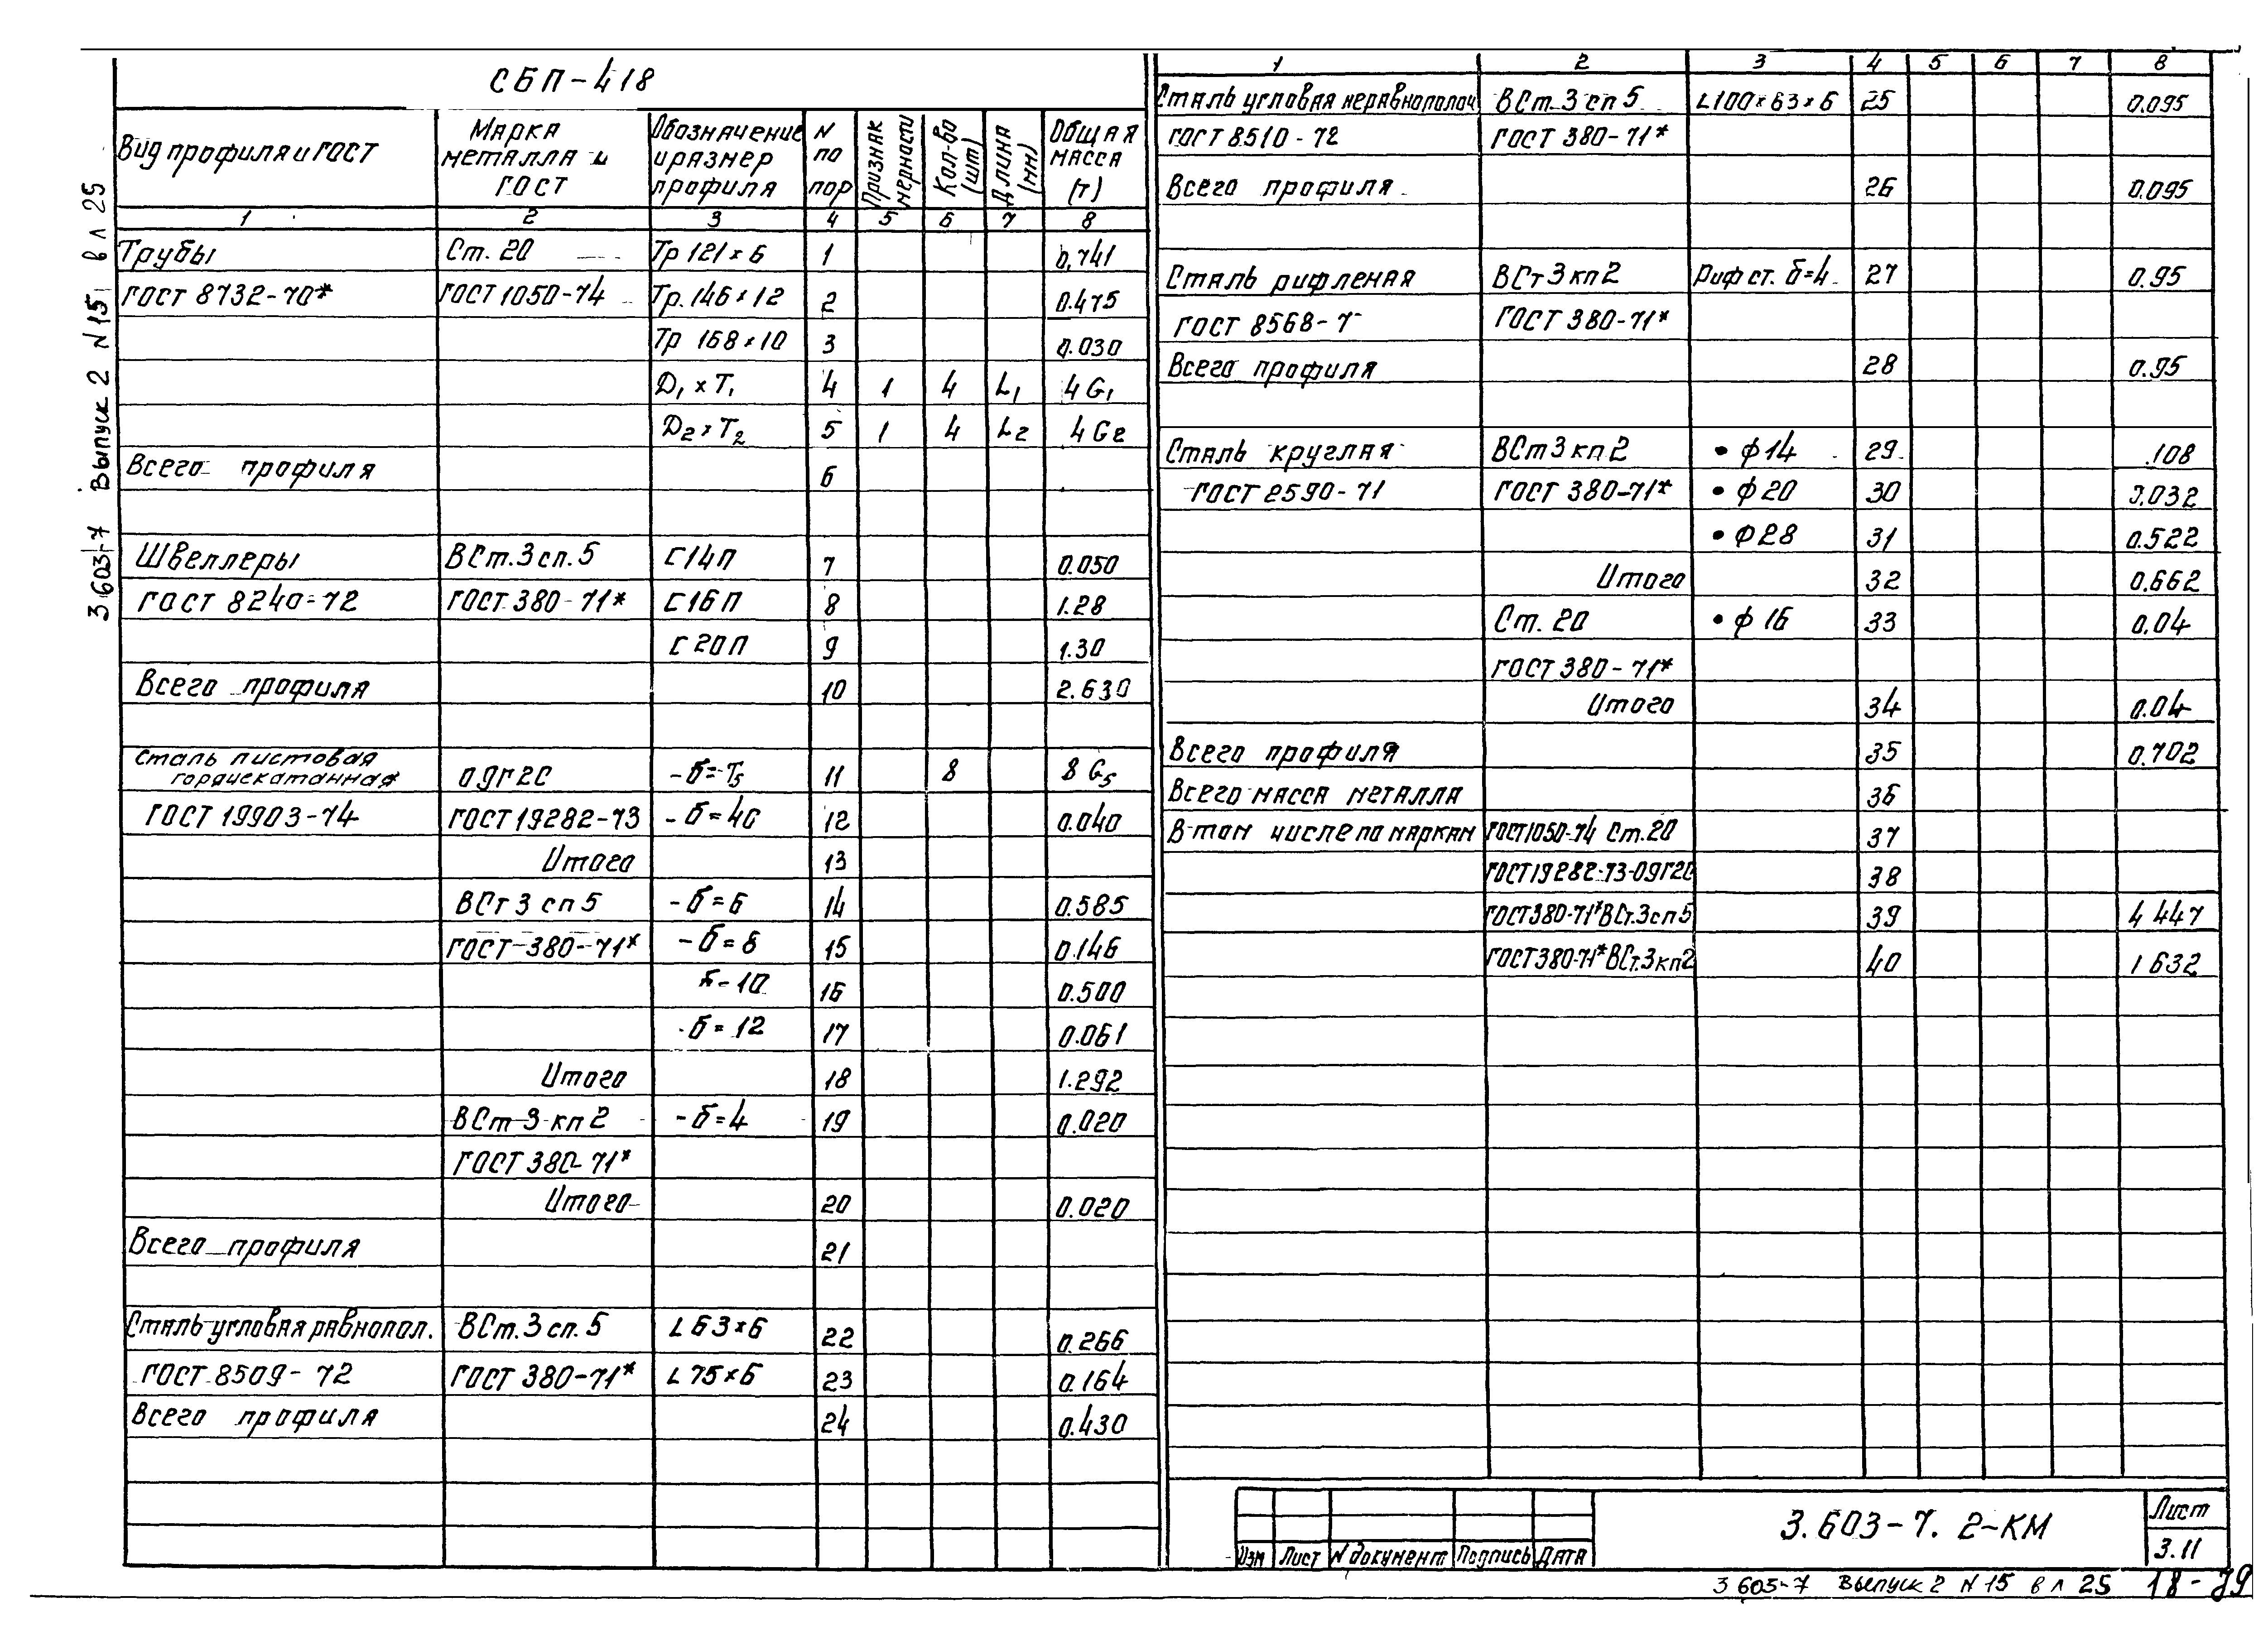 СБП-418
Вид профиля и ГОСТ | Марка металла и ГОСТ | Обозначение и размер профиля | N по пор | Признак мерности | Кол-во (шт) | Длина (мм) | Общая масса (т)
1 2 3 4 5 6 7 8
Трубы Ст. 20 Тр 121×6 1 0,741
ГОСТ 8732-70* ГОСТ 1050-74 Тр. 146×12 2 0.475
Тр 168×10 3 0.030
D₁×T₁ 4 1 4 L₁ 4G₁
D₂×T₂ 5 1 4 L₂ 4G₂
Всего профиля 6
Швеллеры ВСт.3сп.5 С14П 7 0.050
ГОСТ 8240-72 ГОСТ 380-71* С16П 8 1.28
С20П 9 1.30
Всего профиля 10 2.630
Сталь листовая
горячекатанная 09Г2С -б=T₅ 11 8 8G₅
ГОСТ 19903-74 ГОСТ 19282-73 -б=40 12 0.040
Итого 13
ВСт3сп5 -б=6 14 0.585
ГОСТ-380-71* -б=8 15 0.146
б=10 16 0.500
-б=12 17 0.061
Итого 18 1.292
ВСт3кп2 -б=4 19 0.020
ГОСТ 380-71*
Итого 20 0.020
Всего профиля 21
Сталь угловая равнопол. ВСт.3сп.5 L63×6 22 0.266
ГОСТ 8509-72 ГОСТ 380-71* L75×6 23 0.164
Всего профиля 24 0.430
1 2 3 4 5 6 7 8
Сталь угловая неравнополоч ВСт.3сп5 L100×63×6 25 0.095
ГОСТ 8510-72 ГОСТ 380-71*
Всего профиля 26 0.095
Сталь рифленая ВСт3кп2 Риф ст. б=4 27 0.95
ГОСТ 8568-7 ГОСТ 380-71*
Всего профиля 28 0.95
Сталь круглая ВСт3кп2 • ф14 29 .108
ГОСТ 2590-71 ГОСТ 380-71* • ф20 30 0.032
• ф28 31 0.522
Итого 32 0.662
Ст. 20 • ф16 33 0.04
ГОСТ 380-71*
Итого 34 0.04
Всего профиля 35 0.702
Всего масса металла 36
В том числе по маркам ГОСТ1050-74 Ст.20 37
ГОСТ19282-73-09Г2С 38
ГОСТ380-71*ВСт.3сп5 39 4 447
ГОСТ380-71*ВСт.3кп2 40 1 632
Изм Лист N документ Подпись Дата
3.603-7. 2-КМ
Лист
3.11
3 603-7 Выпуск 2 N 15 в л 25 18-79
3 603-7 Выпуск 2 N 15 в л 25